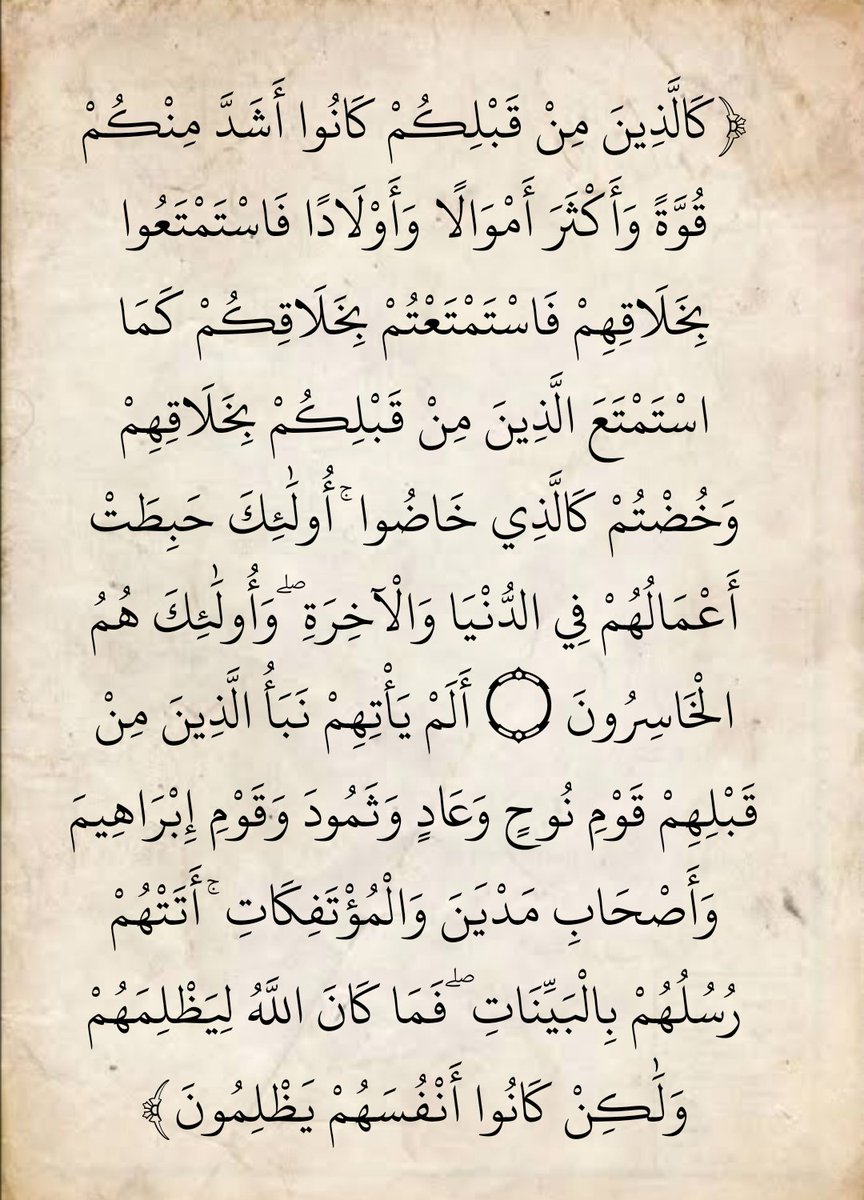 ﴿كَالَّذِينَ مِنْ قَبْلِكُمْ كَانُوا أَشَدَّ مِنْكُمْ
قُوَّةً وَأَكْثَرَ أَمْوَالًا وَأَوْلَادًا فَاسْتَمْتَعُوا
بِخَلَاقِهِمْ فَاسْتَمْتَعْتُمْ بِخَلَاقِكُمْ كَمَا
اسْتَمْتَعَ الَّذِينَ مِنْ قَبْلِكُمْ بِخَلَاقِهِمْ
وَخُضْتُمْ كَالَّذِي خَاضُوا ۚ أُولَٰئِكَ حَبِطَتْ
أَعْمَالُهُمْ فِي الدُّنْيَا وَالْآخِرَةِ ۖ وَأُولَٰئِكَ هُمُ
الْخَاسِرُونَ ۝ أَلَمْ يَأْتِهِمْ نَبَأُ الَّذِينَ مِنْ
قَبْلِهِمْ قَوْمِ نُوحٍ وَعَادٍ وَثَمُودَ وَقَوْمِ إِبْرَاهِيمَ
وَأَصْحَابِ مَدْيَنَ وَالْمُؤْتَفِكَاتِ ۚ أَتَتْهُمْ
رُسُلُهُمْ بِالْبَيِّنَاتِ ۖ فَمَا كَانَ اللَّهُ لِيَظْلِمَهُمْ
وَلَٰكِنْ كَانُوا أَنْفُسَهُمْ يَظْلِمُونَ﴾